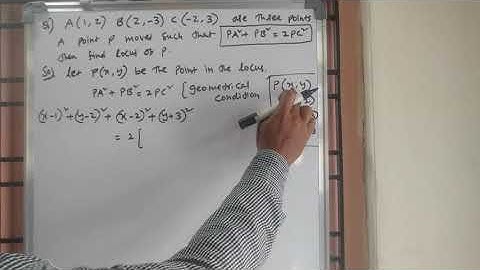 Q) A(1,2) B(2,-3) C(-2,3) are three points
A point P moves such that PA²+PB²=2PC²
then find locus of P.
Sol) let P(x,y) be the point in the locus.
PA²+PB²=2PC² [geometrical condition
P(x,y)
(x-1)²+(y-2)²+(x-2)²+(y+3)²
= 2[